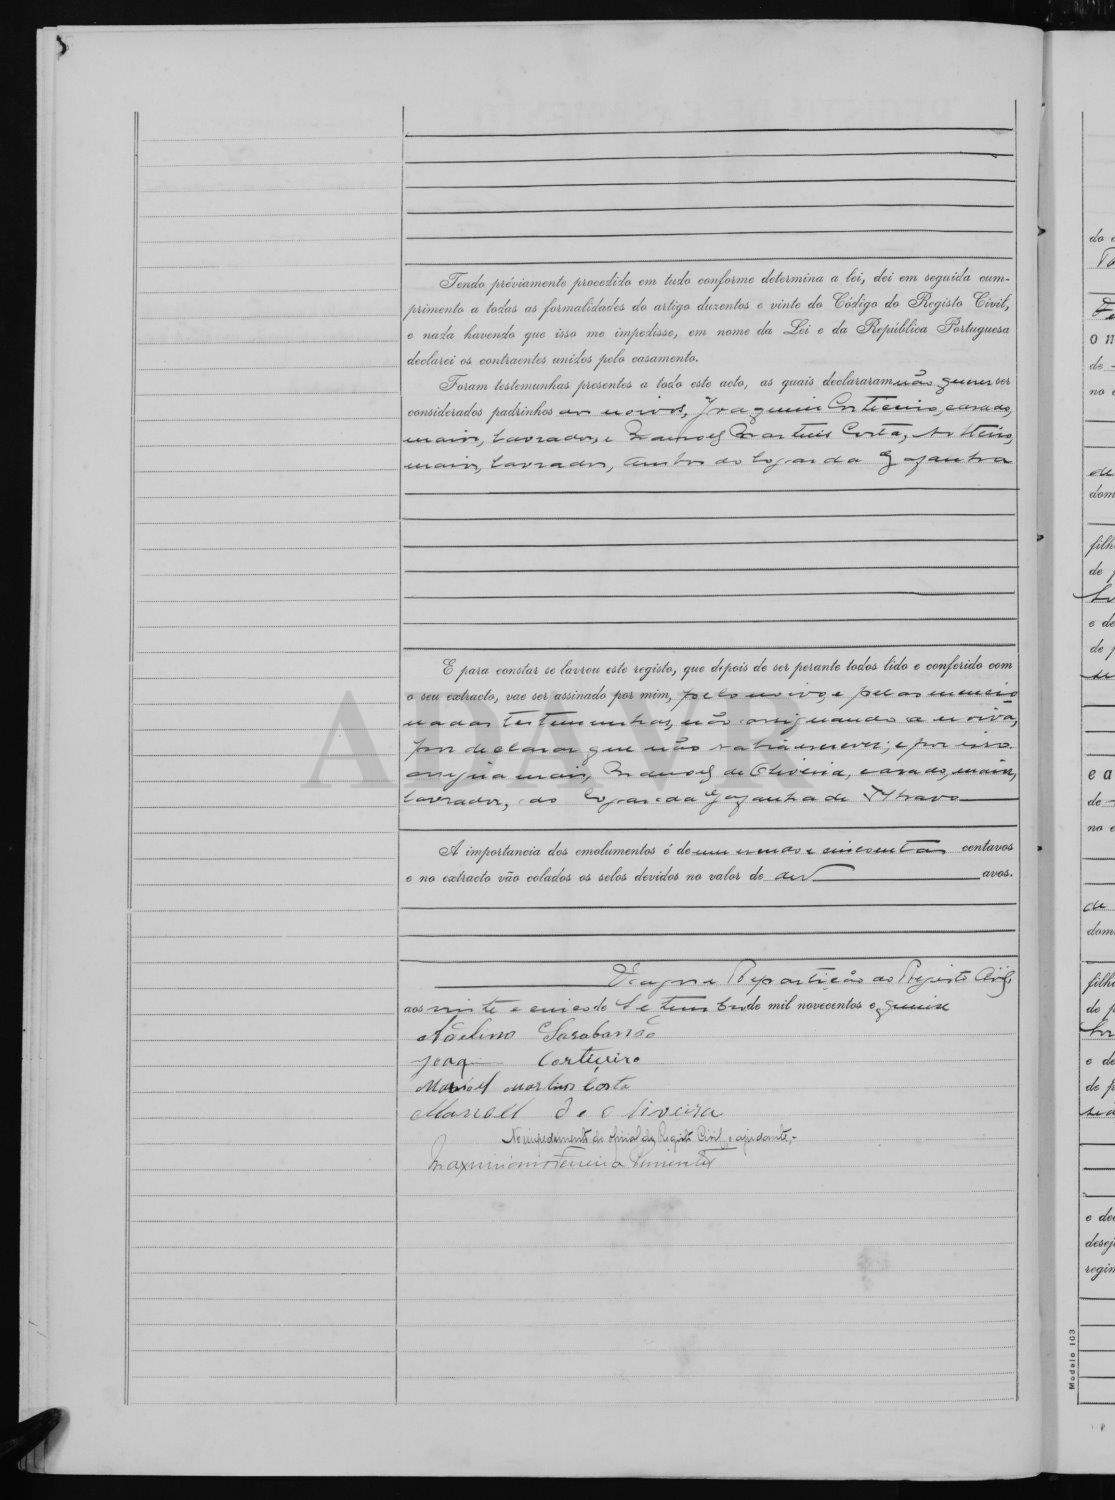 Tendo préviamente procedido em tudo conforme determina a lei, dei em seguida cum-
primento a todas as formalidades do artigo duzentos e vinte do Código do Registo Civil,
e nada havendo que isso me impedisse, em nome da Lei e da República Portuguesa
declarei os contraentes unidos pelo casamento.
Foram testemunhas presentes a todo este acto, as quais declararam não querer ser
considerados padrinhos dos noivos, Joaquim Corticeiro, casado,
maior, lavrador, e Manoel Martins Costa, solteiro,
maior, lavrador, ambos do logar da Gafanha
E para constar se lavrou este registo, que depois de ser perante todos lido e conferido com
o seu extracto, vae ser assinado por mim, pelo noivo, e pelas mencio
nadas testemunhas, não assignando a noiva,
por declarar que não sabia escrever; e por isso
assigna mais, Manoel de Oliveira, casado, maior,
lavrador, do logar da Gafanha de
A importancia dos emolumentos é de um escudo e cincoenta centavos
e no extracto vão colados os selos devidos no valor de avos.
Repartição do Registo Civil,
aos vinte e cinco de Setembro de mil novecentos e quinze
Adelino Sarabando
Joaq Corticeiro
Manoel Martins Costa
Manoel de Oliveira
No impedimento do oficial do Registo Civil, o ajudante,-
Ferreira Pimentel
ADAVR
do
no
de
dom
filh
de p
e de
de p
e a
de
no e
de
dom
filh
de p
e de
de p
e de
desej
regim
Modelo 103